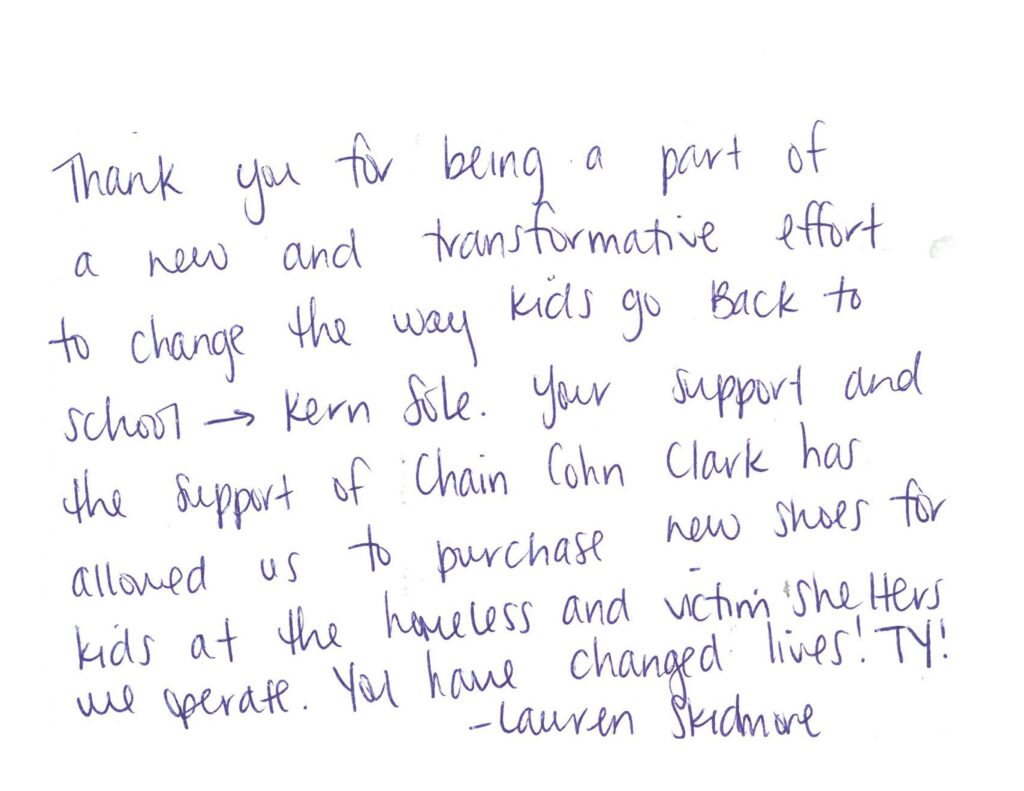 Thank you for being a part of
a new and transformative effort
to change the way kids go Back to
school → Kern Sole. Your support and
the support of Chain Cohn Clark has
allowed us to purchase new shoes for
kids at the homeless and victim shelters
we operate. You have changed lives! TY!
-Lauren Skidmore